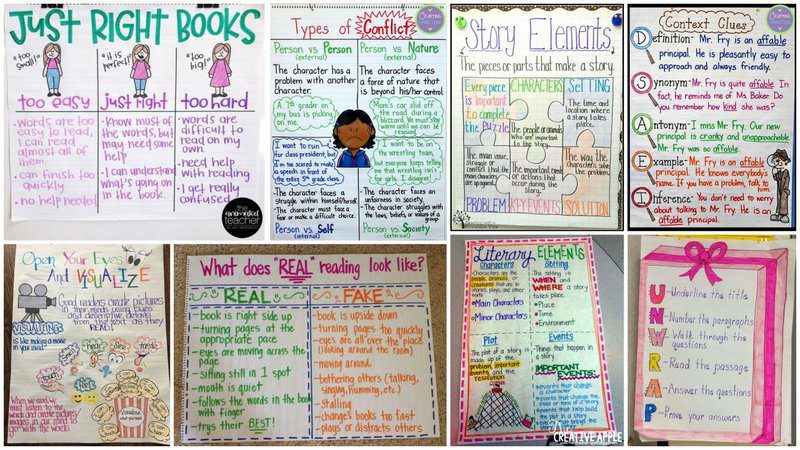 JUST RIGHT BOOKS
"too small!"
"it is perfect!"
"too big!"
too easy
just right
too hard
-Words are too easy to read, I can read almost all of them.
-can finish too quickly
-no help needed
-Know most of the words, but may need some help
-I can understand what's going on in the book.
-words are difficult to read on my own.
-need help with reading
-I get really confused
the animated teacher
Types of Conflict
Person vs. Person
(external)
The character has a problem with another character.
A 7th grader on my bus is picking on me.
I want to run for class president, but I'm too scared to make a speech in front of the entire 5th grade class.
The character faces a struggle within himself/herself.
The character must face a fear or make a difficult choice.
Person vs. Self
(internal)
Person vs. Nature
(external)
The character faces a force of nature that is beyond his/her control.
Mom's car slid off the road during a blizzard. We must stay warm until we can be rescued.
I want to be on the wrestling team, but everyone keeps telling me that wrestling isn't for girls. I disagree!
The character faces an unfairness in society.
The character struggles with the laws, beliefs, or values of a group
Person vs. Society
(external)
Story Elements
The pieces or parts that make a story.
Every piece is important to complete the Puzzle.
CHARACTERS
The people or animals who are important to the story.
SETTING
The time and location where a story takes place.
The main issue, struggle, or conflict that the main characters are having
PROBLEM
The most important events or actions that occur during the story.
KEY EVENTS
The way the characters solve the problem.
SOLUTION
Context Clues
Definition- Mr. Fry is an affable principal. He is pleasantly easy to approach and always friendly.
Synonym- Mr. Fry is quite affable. In fact, he reminds me of Ms. Baker. Do you remember how kind she was?
Antonym- I miss Mr. Fry. Our new principal is cranky and unapproachable. Mr. Fry was so affable.
Example- Mr. Fry is an affable principal. He knows everybody's name. If you have a problem, talk to
Inference- You don't need to worry about talking to Mr. Fry. He is an affable principal.
Open Your Eyes
And VISUALIZE
Good readers create pictures in their minds using clues and descriptive details from the text as they READ!
VISUALIZING
is like making a movie in your mind!
hear
taste
When we read, we must listen to the words and create pictures/images in our mind to go with the words.
What does "REAL" reading look like?
REAL
-book is right side up
-turning pages at the appropriate pace
-eyes are moving across the page
-sitting still in 1 spot
-mouth is quiet
-follows the words in the book with finger
-trys their BEST!
FAKE
-book is upside down
-turning pages too quickly
-eyes are all over the place (looking around the room)
-moving around
-bothering others (talking, singing, humming, etc.)
-stalling
-changes books too fast
-plays or distracts others
Literary ELEMENTS
Characters
Characters are the people, animals, or creatures that are in stories, plays, and other works.
Main Characters
Minor Characters
Setting
The setting is WHEN and WHERE a story takes place.
Place
Time
Environment
Plot
The plot of a story is made up of the problem, important events, and the resolution
Events
Things that happen in a story.
IMPORTANT EVENTS:
events that change a character
events that change the mood or tone of a story
events that help build the plot in a story
CREATIVE APPLE
U-Underline the title
N-Number the paragraphs
W-Walk through the questions
R-Read the passage
A-Answer the questions
P-Prove your answers